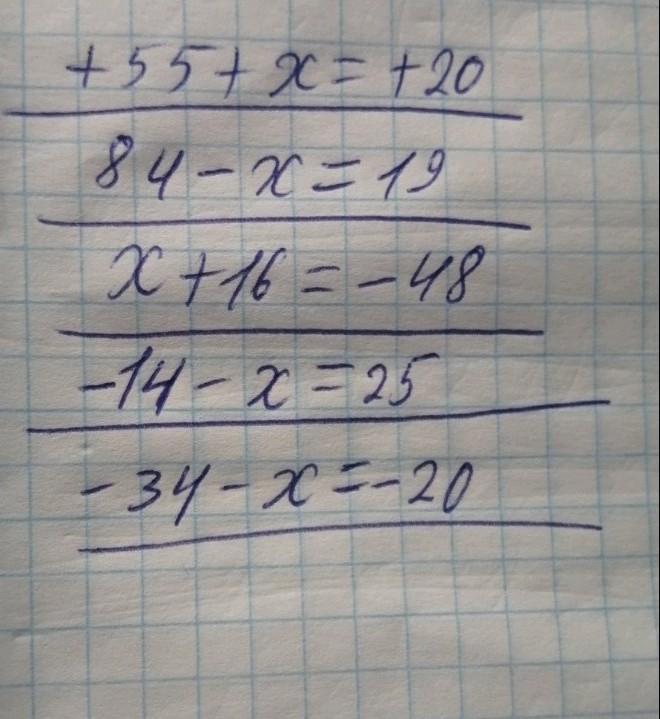 +55+x=+20
84-x=19
x+16=-48
-14-x=25
-34-x=-20